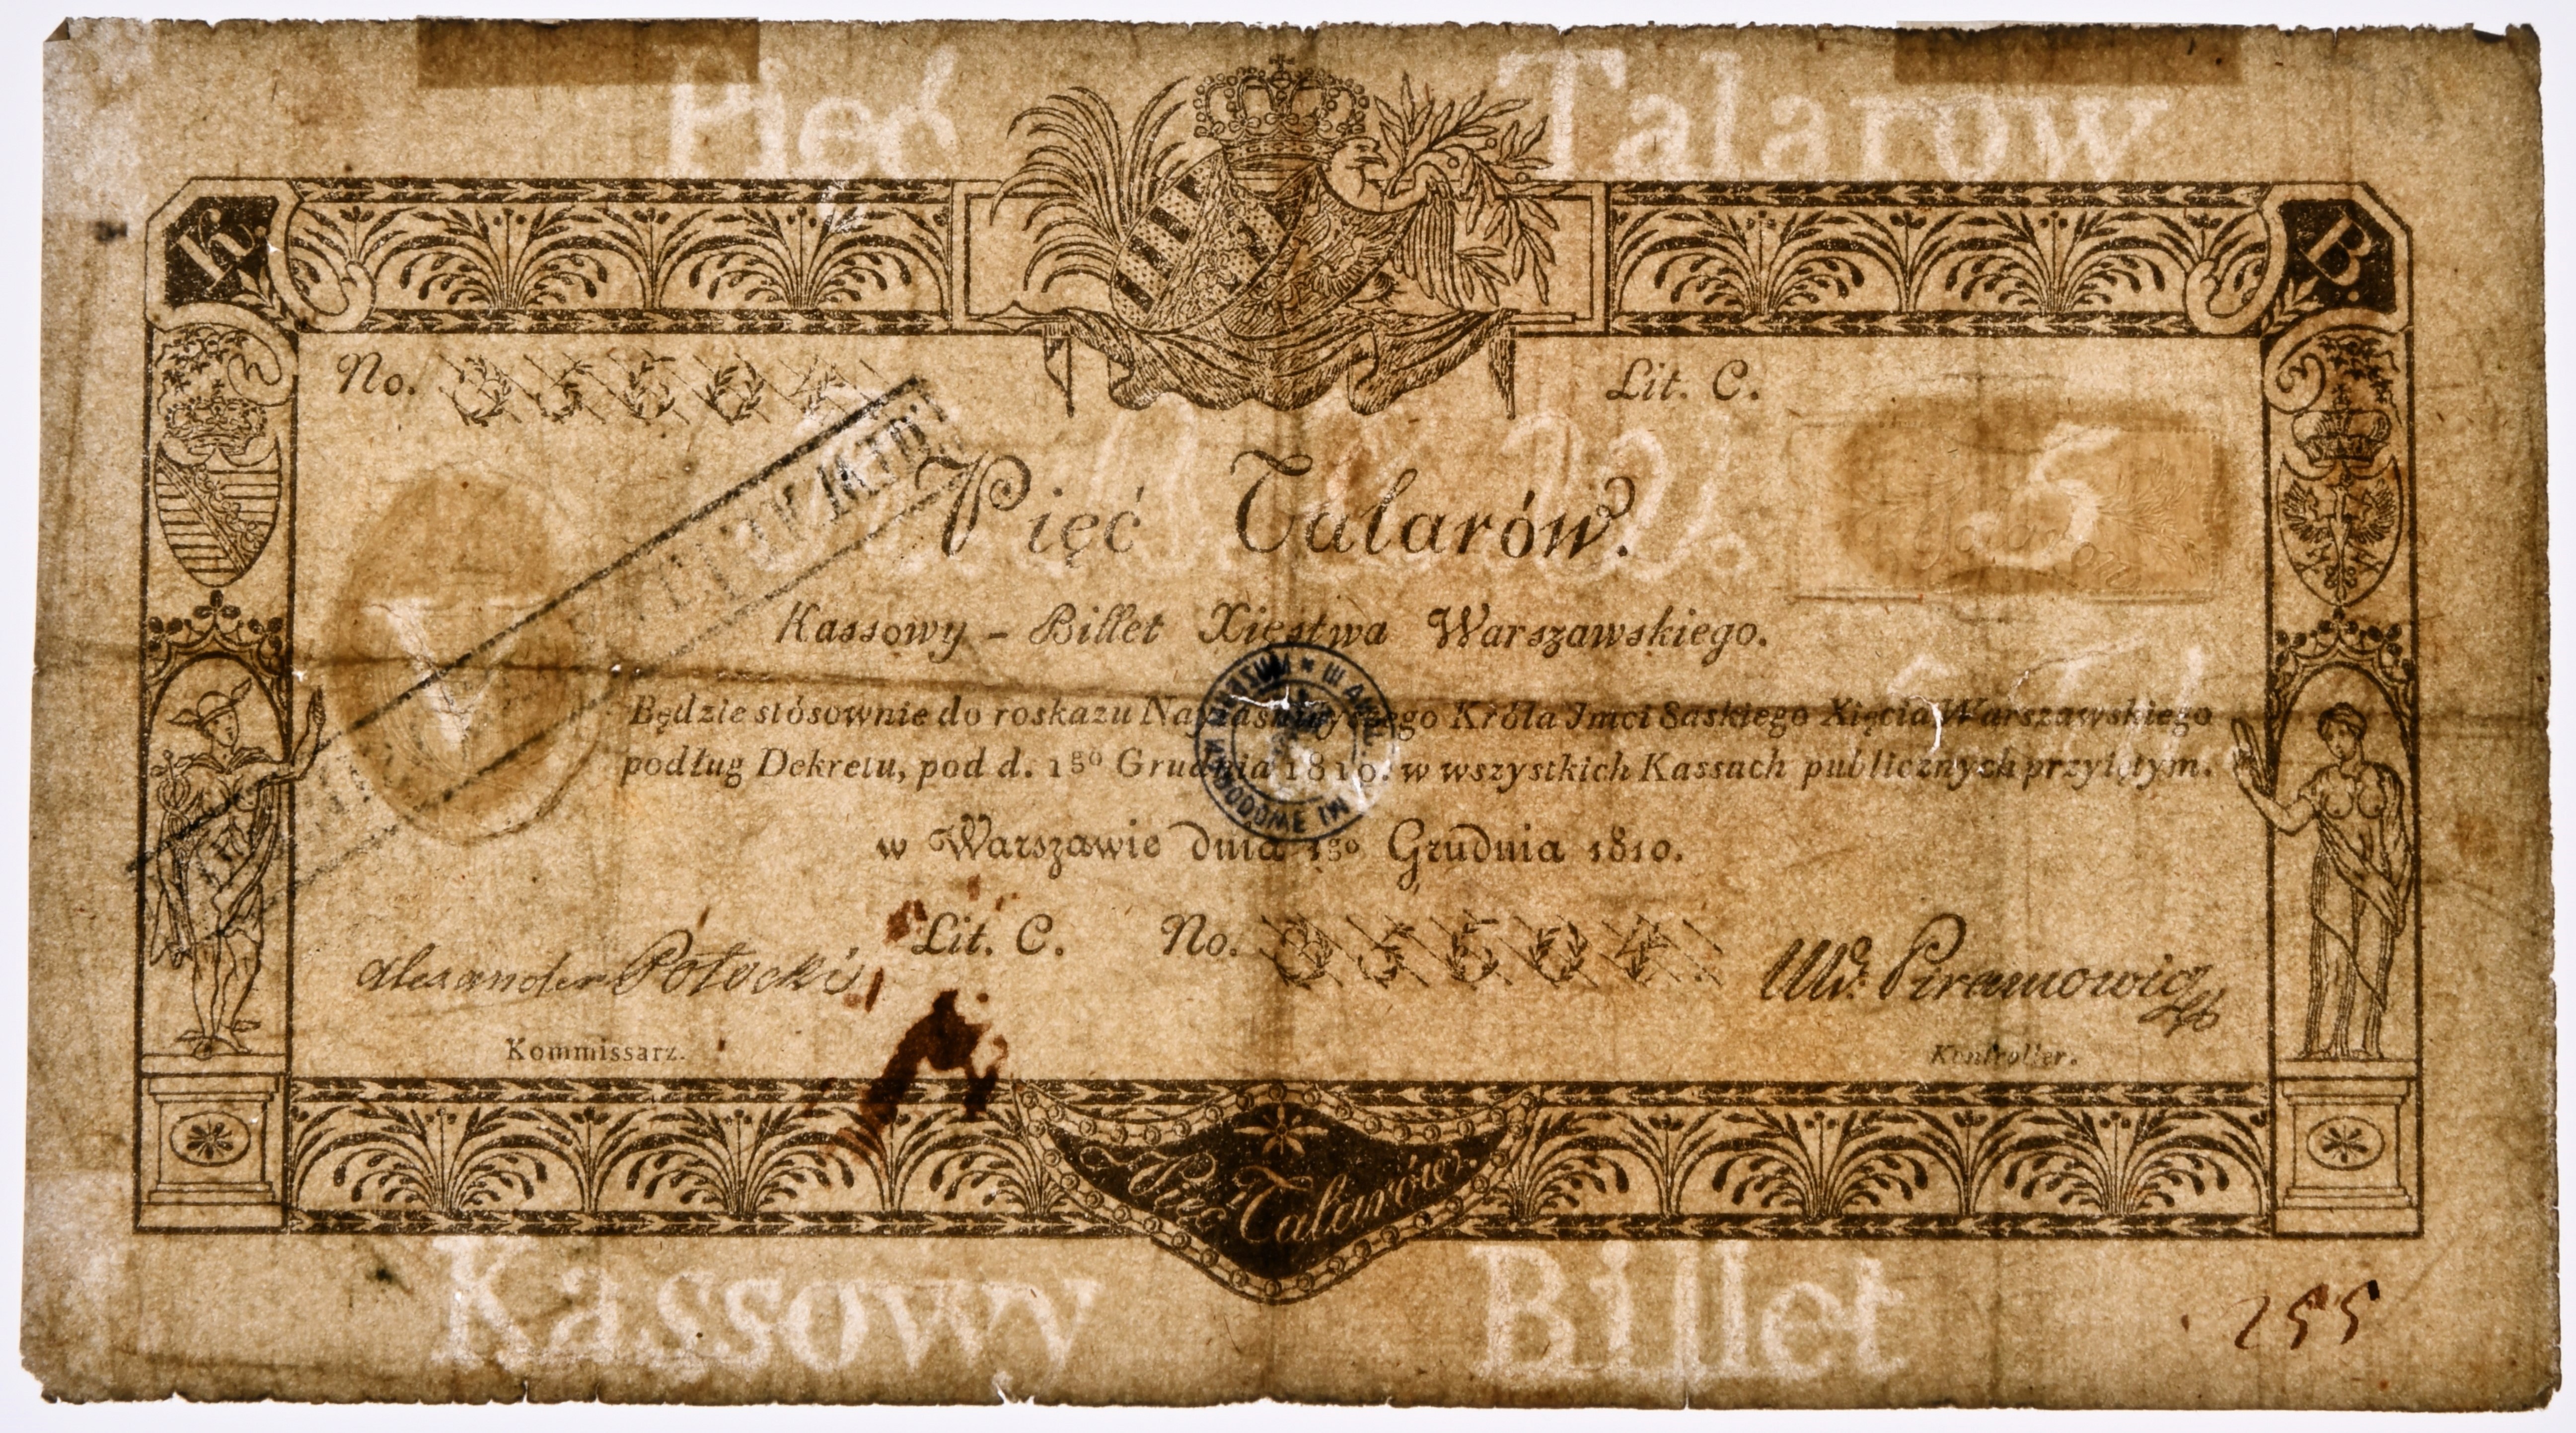 Pięć Talarow
K. B.
No. Lit. C.
Pięć Talarów.
5
Kassowy - Billet Xięstwa Warszawskiego.
V
Będzie stósownie do roskazu Nayiaśnieyszego Króla Jmci Saskiego Xięcia Warszawskiego
podług Dekretu, pod d. 1go Grudnia 1810. w wszystkich Kassach publicznych przyiętym.
w Warszawie dnia 1go Grudnia 1810.
Lit. C. No. 35504.
Alexander Potocki Piramowicz
Kommissarz. Kontroller.
Pięć Talarów
Kassowy Billet
255